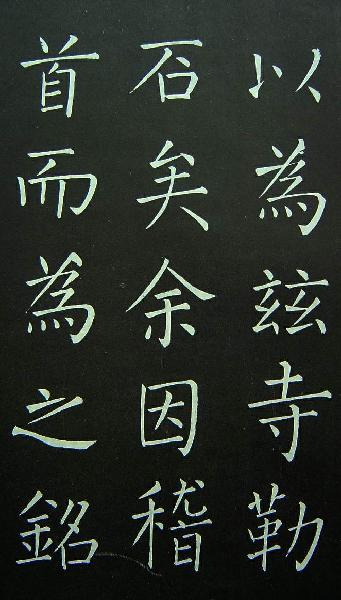 以為兹寺勒
石矣余因稽
首而為之銘